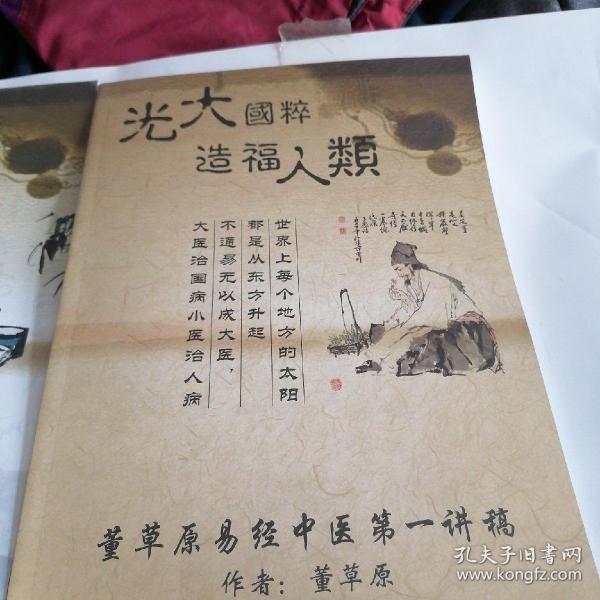 光大國粹
造福人類
世界上每个地方的太阳
都是从东方升起
不通易无以成大医，
大医治国病小医治人病
董草原易经中医第一讲稿
作者：董草原
孔夫子旧书网
www.kongfz.com